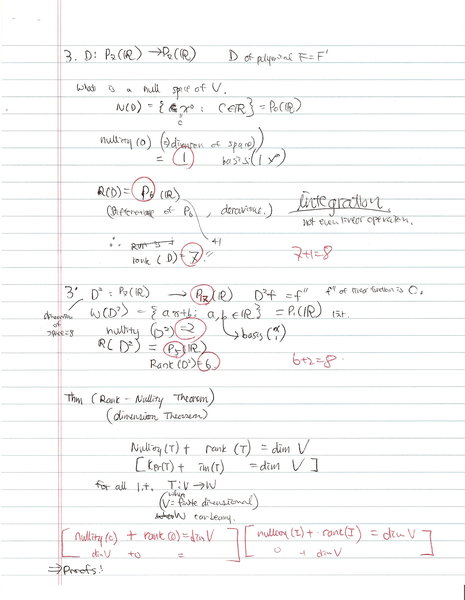 3. D: P₇(ℝ) → P₇(ℝ) D of polynomial F = F'
What is a null space of V.
N(D) = { C x⁰ : C∈ℝ } = P₀(ℝ)
c
nullity (D) (= dimension of space)
= 1 basis (1 x⁰)
R(D) = P₆(ℝ) integration
(Difference of P₆, derivative.) not even linear operation.
+1
∴ rank (D) = 7 " 7+1=8
3' D² : P₇(ℝ) → P₇(ℝ) D²f = f'' f'' of linear function is 0.
dimension of space=8
N(D²) = {ax+b; a,b ∈ ℝ} = P₁(ℝ)
nullity (D²) = 2 basis (x, 1)
R(D²) = P₅(ℝ)
Rank(D²) = 6 6+2=8
Thm (Rank - Nullity Theorem)
(dimension Theorem)
Nullity(T) + rank (T) = dim V
[ker(T) + im(T) = dim V]
for all l.t. T: V → W
when
(V = finite dimensional)
W can be any.
[nullity(0) + rank(0) = dim V] [nullity(I) + rank(I) = dim V]
dim V +0 = 0 + dim V
⇒ Proofs!